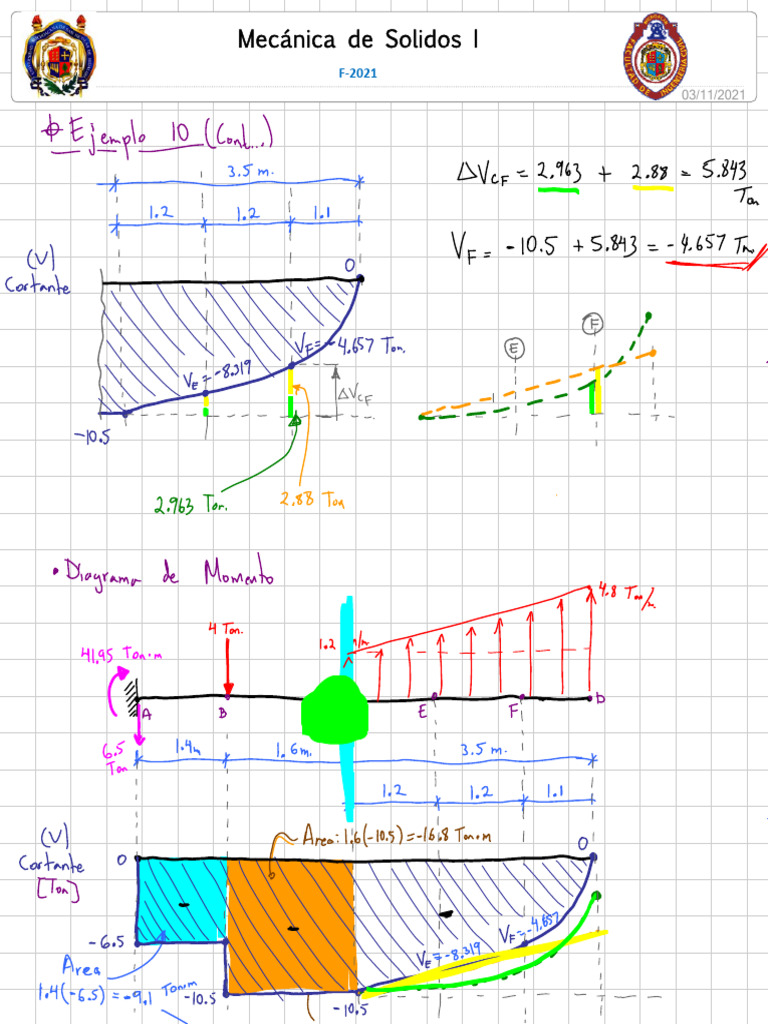 Mecánica de Solidos I
F-2021
03/11/2021
Ejemplo 10 (Cont...)
3.5 m.
1.2 1.2 1.1
ΔV_CF = 2.963 + 2.88 = 5.843 Ton
V_F = -10.5 + 5.843 = -4.657 Ton
(V)
Cortante
0
V_F = -4.657 Ton.
V_E = -8.319
ΔV_CF
-10.5
E
F
2.963 Ton.
2.88 Ton
• Diagrama de Momento
4.8 Ton/m.
4 Ton.
1.2
41.95 Ton·m
A B E F D
6.5 Ton
1.4m 1.6m. 3.5 m.
1.2 1.2 1.1
Area: 1.6(-10.5) = -16.8 Ton·m
(V)
Cortante
[Ton]
0
0
-6.5
V_E = -8.319
V_F = -4.657
Area
1.4(-6.5) = -9.1 Ton·m
-10.5
-10.5